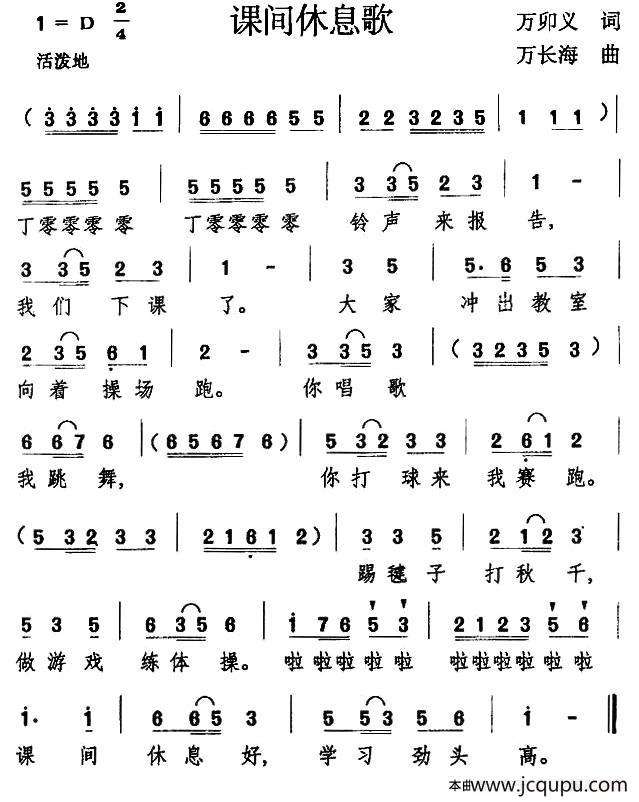 1 = D 2/4 课间休息歌 万卯义 词
活泼地 万长海 曲
( 3 3 3 3 1 1 | 6 6 6 6 5 5 | 2 2 3 2 3 5 | 1 1 1 ) |
5 5 5 5 5 | 5 5 5 5 5 | 3 3 5 2 3 | 1 - |
丁零零零 零 丁零零零 零 铃 声 来 报 告,
3 3 5 2 3 | 1 - | 3 5 | 5. 6 5 3 |
我 们 下 课 了。 大 家 冲 出 教 室
2 3 5 6 1 | 2 - | 3 3 5 3 | ( 3 2 3 5 3 ) |
向 着 操 场 跑。 你 唱 歌
6 6 7 6 | ( 6 5 6 7 6 ) | 5 3 2 3 3 | 2 6 1 2 |
我 跳 舞, 你 打 球 来 我 赛 跑。
( 5 3 2 3 3 | 2 1 6 1 2 ) | 3 3 5 | 2 1 2 3 |
踢 毽 子 打 秋 千,
5 3 5 | 6 3 5 6 | 1 7 6 5 3 | 2 1 2 3 5 6 |
做 游 戏 练 体 操。 啦 啦啦 啦 啦 啦啦啦啦 啦 啦
1. 1 | 6 6 5 3 | 5 5 3 5 6 | 1 - ‖
课 间 休 息 好, 学 习 劲 头 高。
本曲www.jcqupu.com